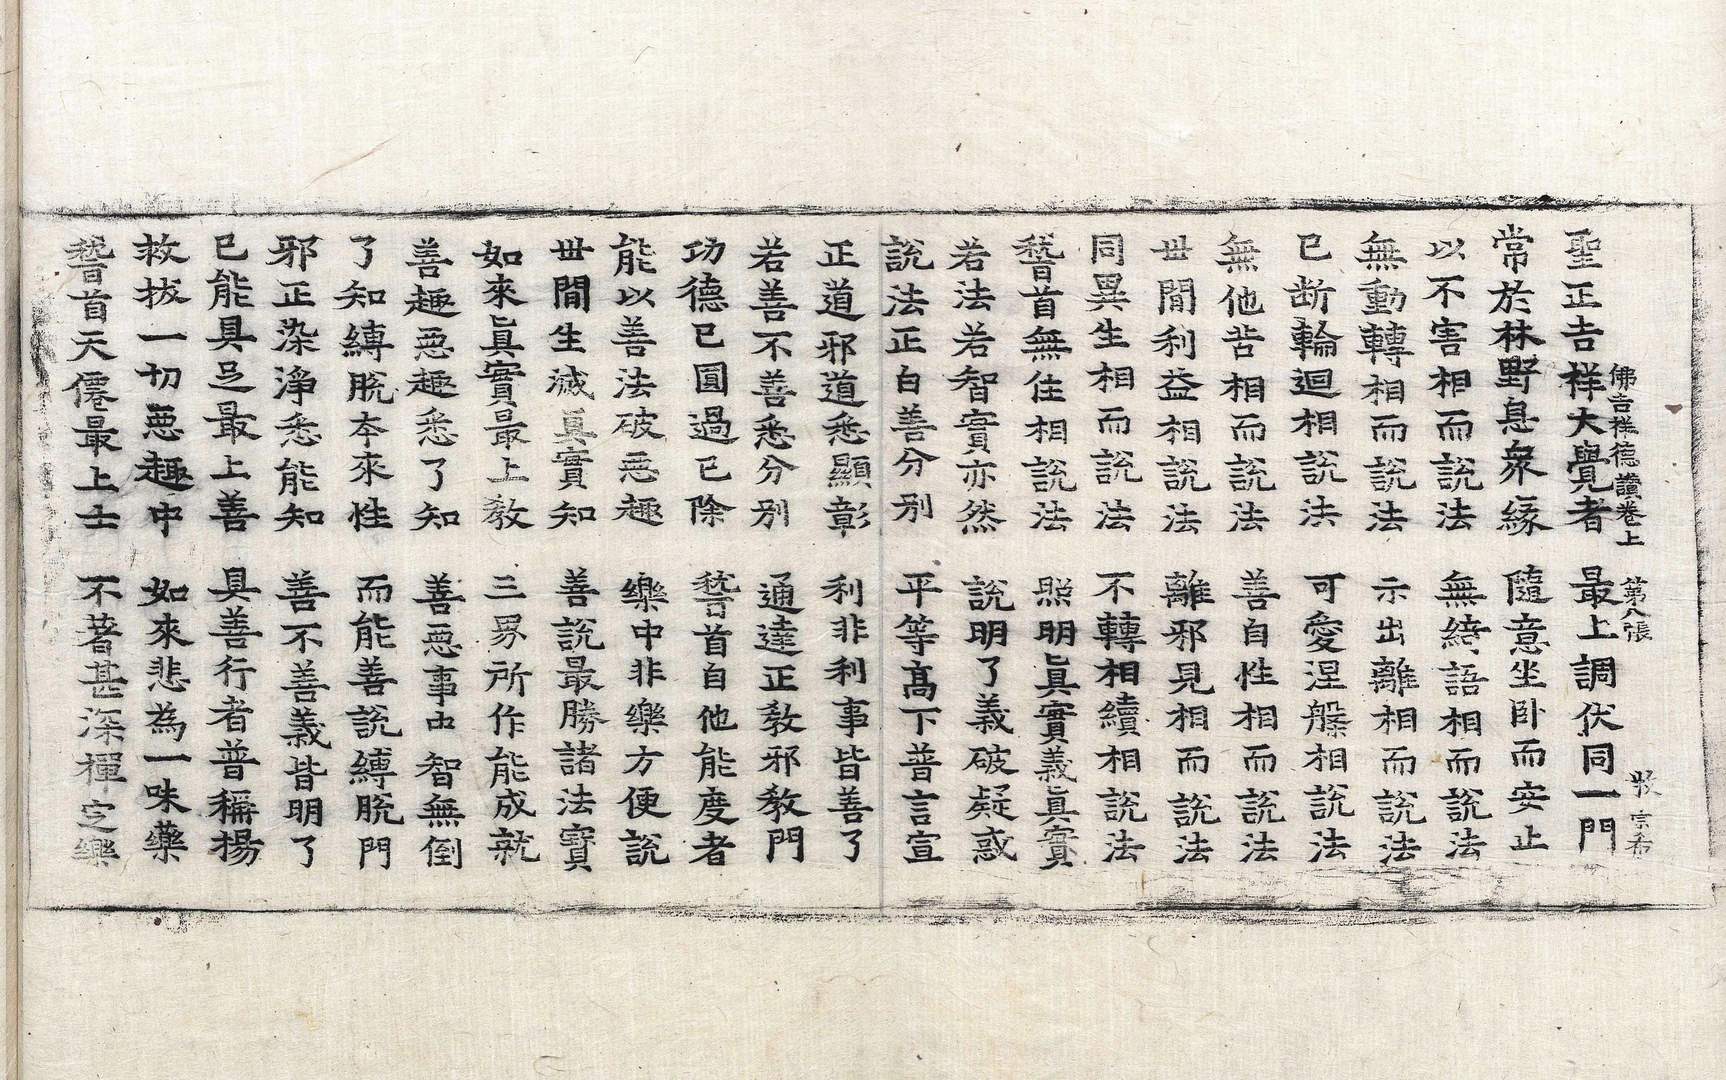 佛吉祥德讚卷上 第八張 宗布
聖正吉祥大覺者 最上調伏同一門
常於林野息衆緣 隨意坐卧而安止
以不害相而說法 無綺語相而說法
無動轉相而說法 示出離相而說法
已断輪迴相說法 可愛涅槃相說法
無他苦相而說法 善自性相而說法
世間利益相說法 離邪見相而說法
同異生相而說法 不轉相續相說法
稽首無住相說法 照明眞實義眞實
若法若智實亦然 說明了義破疑惑
說法正白善分别 平等高下普言宣
正道邪道悉顯彰 利非利事皆善了
若善不善悉分别 通達正教邪教門
功德已圓過已除 稽首自他能度者
能以善法破惡趣 樂中非樂方便說
世間生滅眞實知 善說最勝諸法寶
如來眞實最上教 三界所作能成就
善趣惡趣悉了知 善惡事中智無倒
了知縛脫本來性 而能善說縛脫門
邪正染淨悉能知 善不善義皆明了
已能具足最上善 具善行者普稱揚
救拔一切惡趣中 如來悲為一味藥
稽首天僊最上士 不著甚深禪定樂